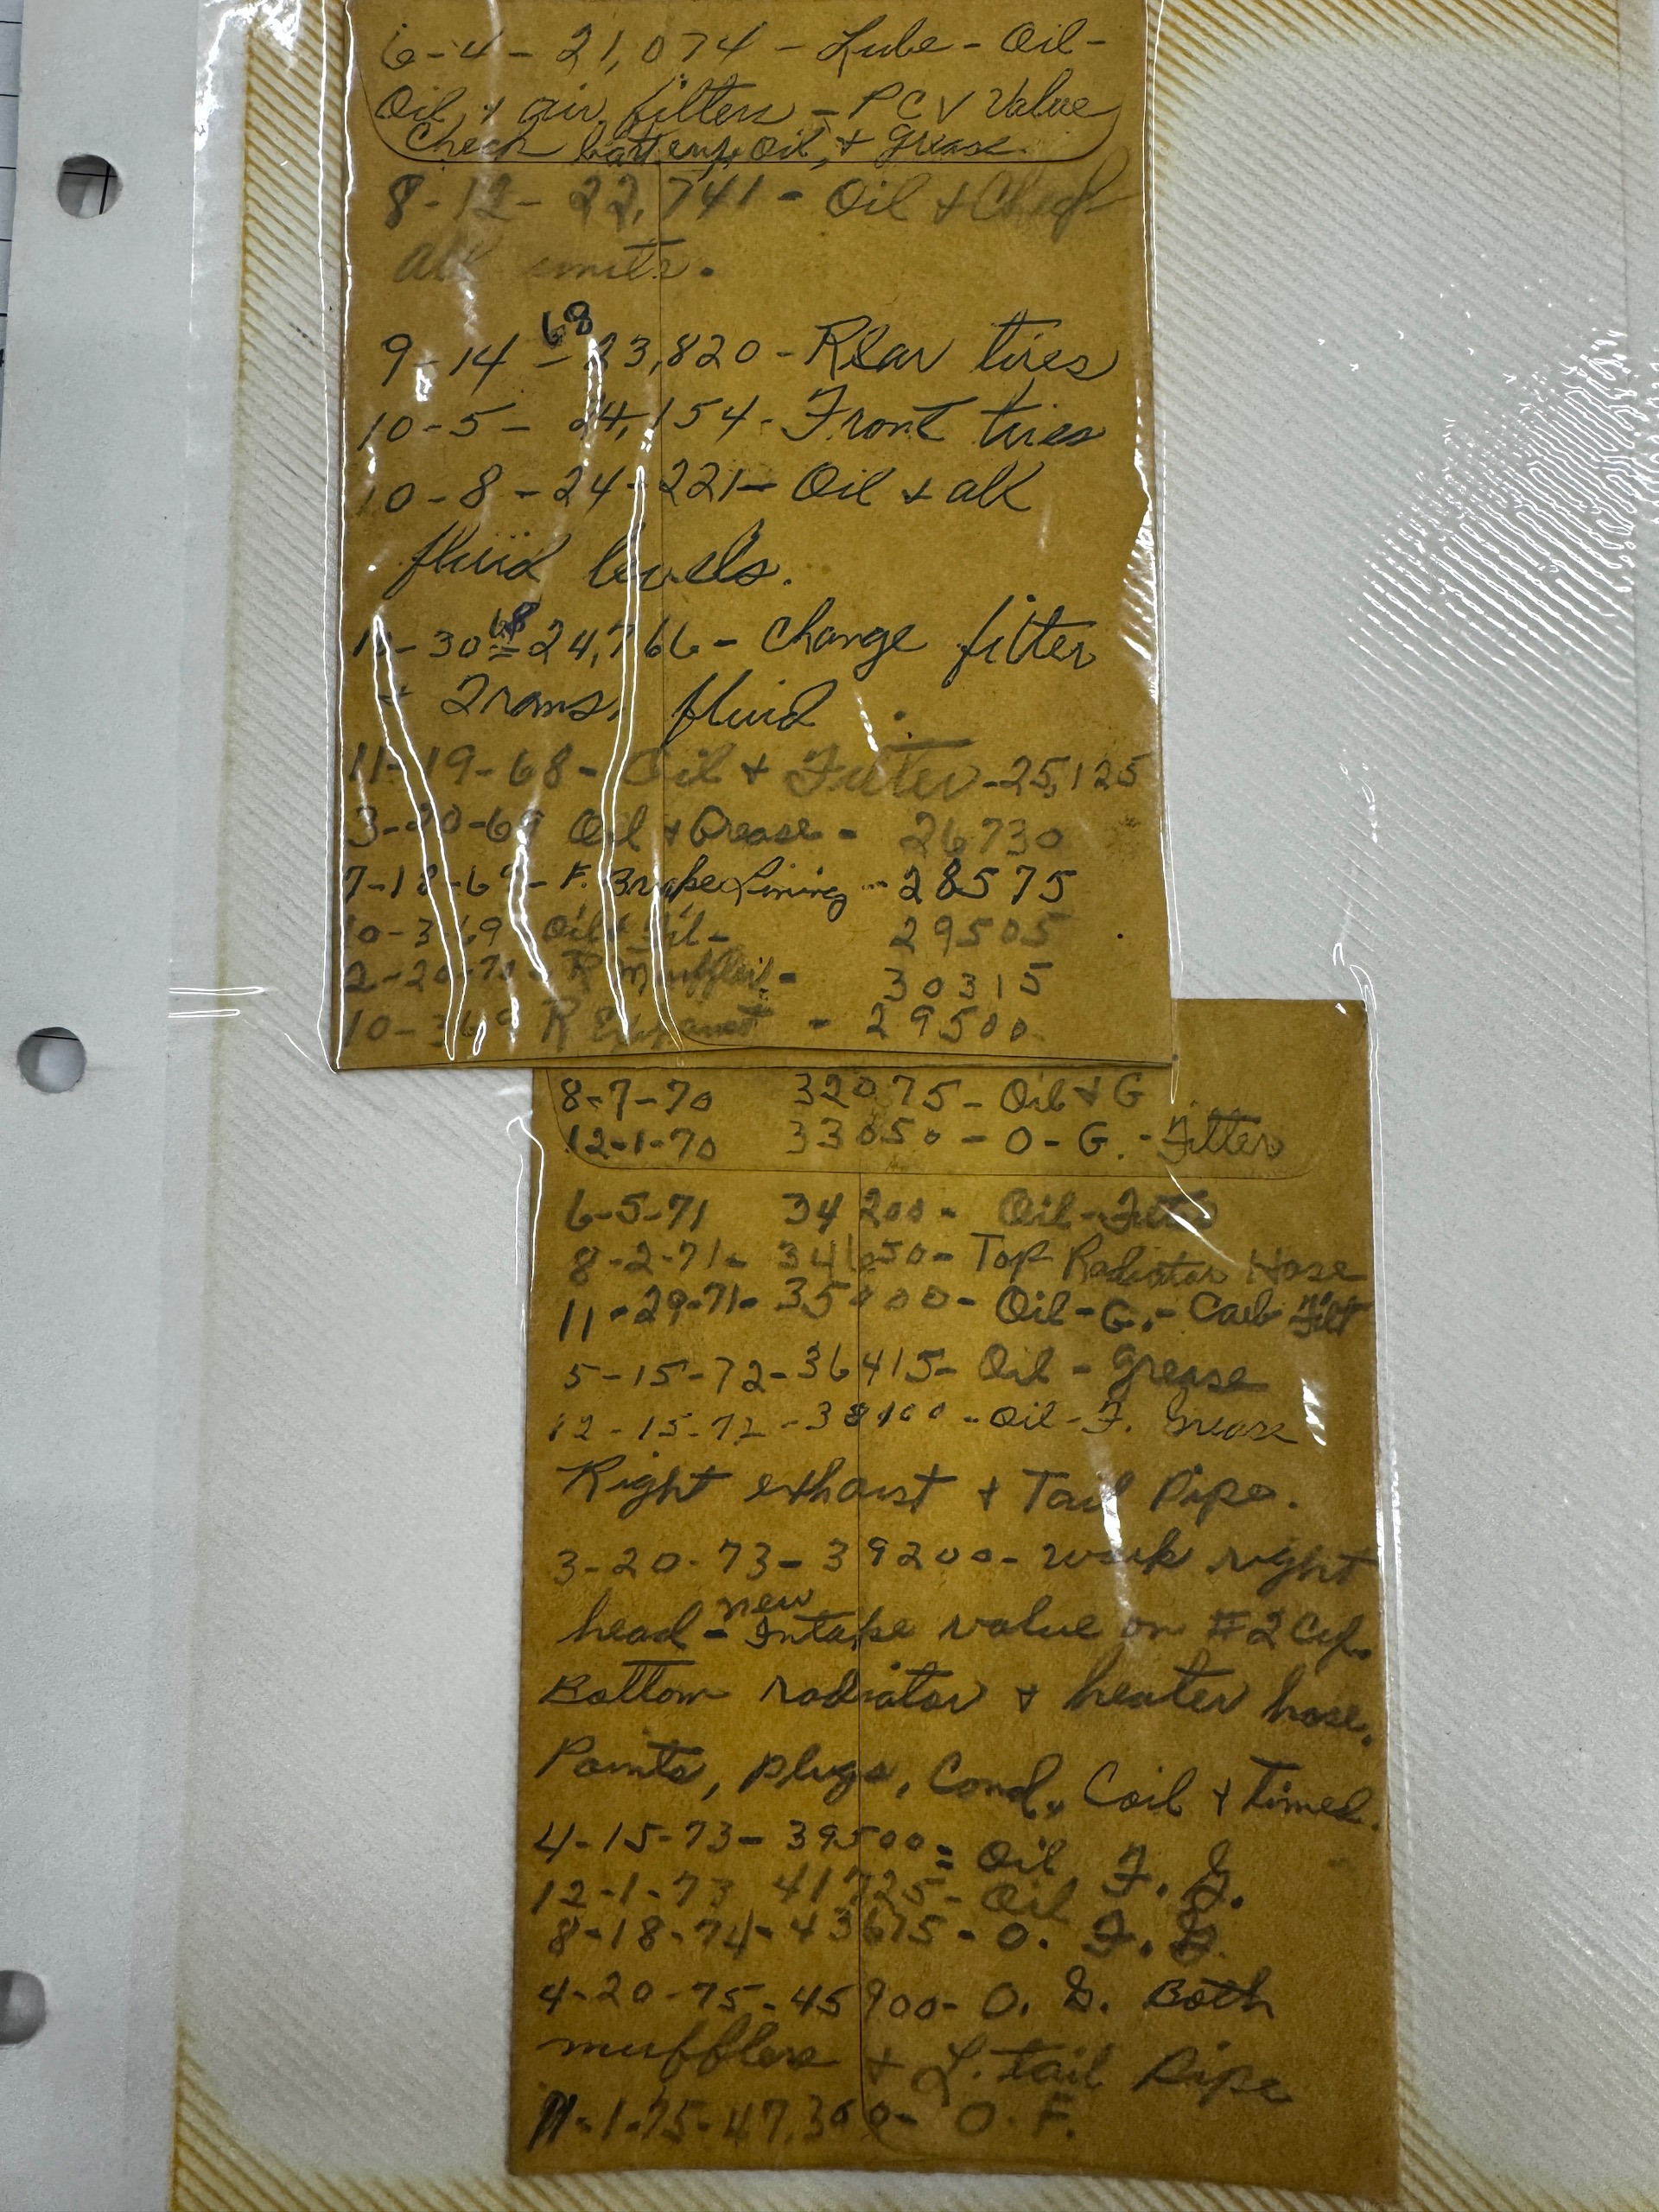 6-4- 21,074 - Lube - Oil -
Oil + air filters - PCV Valve
Check battery, Oil, + grease
8-12- 22,741 - Oil + Check
all units.
68
9-14 - 23,820 - Rear tires
10-5- 24,154 - Front tires
10-8-24-221- Oil + all
fluid levels.
68
-30 = 24,766 - Change filter
+ Trans. fluid
11-19-68- Oil + Filter -25,125
3-20-69 Oil + Grease - 26730
7-18-69- F. Brake Lining - 28575
10-3 69 Oil + - 29505
2-20-70 - R Muffler - 30315
10-3 69 R Exhaust - 29500
8-7-70 32075- Oil + G
12-1-70 33050 - O-G. - Filter
6-5-71 34200- Oil-Filter
8-2-71- 34650- Top Radiator Hose
11-29-71- 35000- Oil-G.- Carb Filt
5-15-72-36415- Oil - Grease
12-15-72 -38100 -Oil-F. Grease
Right exhaust + Tail Pipe.
3-20-73-39200- work right
new
head - Intake valve on #2 Cyl.
Bottom radiator + heater hose.
Points, plugs, Cond., Coil + Timed.
4-15-73- 39500 = Oil F. G.
12-1-73 41725- Oil
8-18-74-43675-O. F. G.
4-20-75-45900- O. G. Both
mufflers + L. tail Pipe
11-1-75-47,300- O. F.